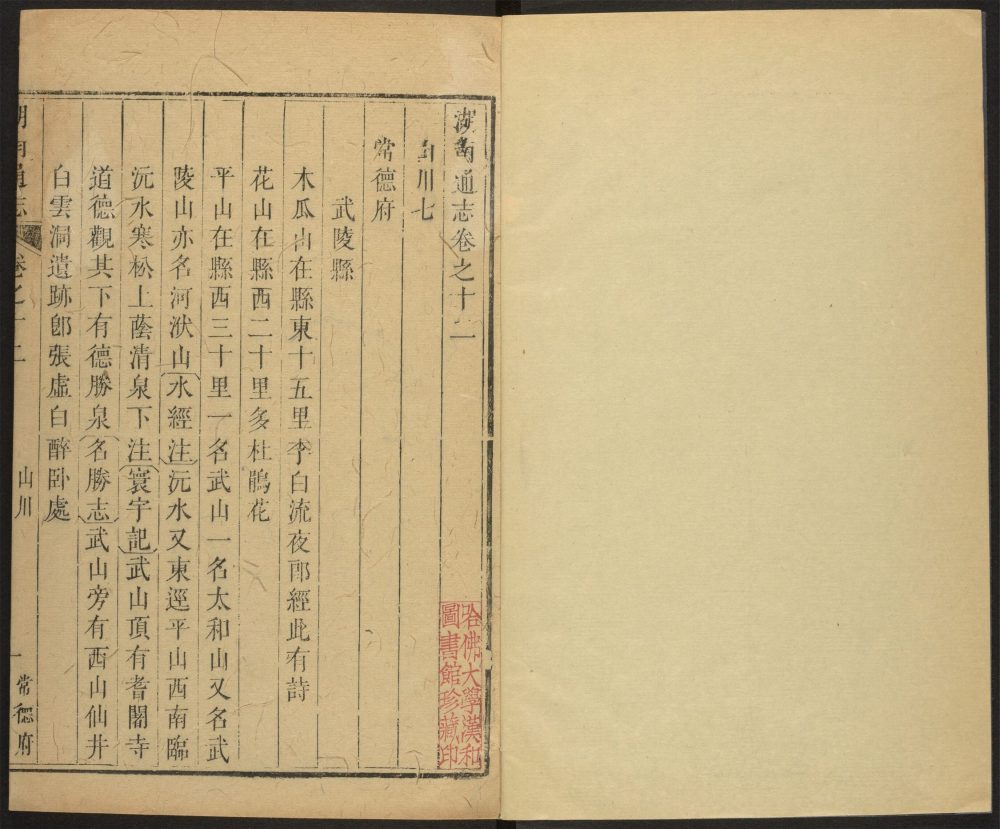 湖南通志卷之十二
山川七
常德府
武陵縣
木瓜山在縣東十五里李白流夜郎經此有詩
花山在縣西二十里多杜鵑花
平山在縣西三十里一名武山一名太和山又名武
陵山亦名河洑山水經注沅水又東逕平山西南臨
沅水寒松上蔭清泉下注寰宇記武山頂有耆闍寺
道德觀其下有德勝泉名勝志武山旁有西山仙井
白雲洞遺跡郎張虛白醉卧處
湖南通志 卷之十二 山川 一 常德府
哈佛大學漢和
圖書館珍藏印